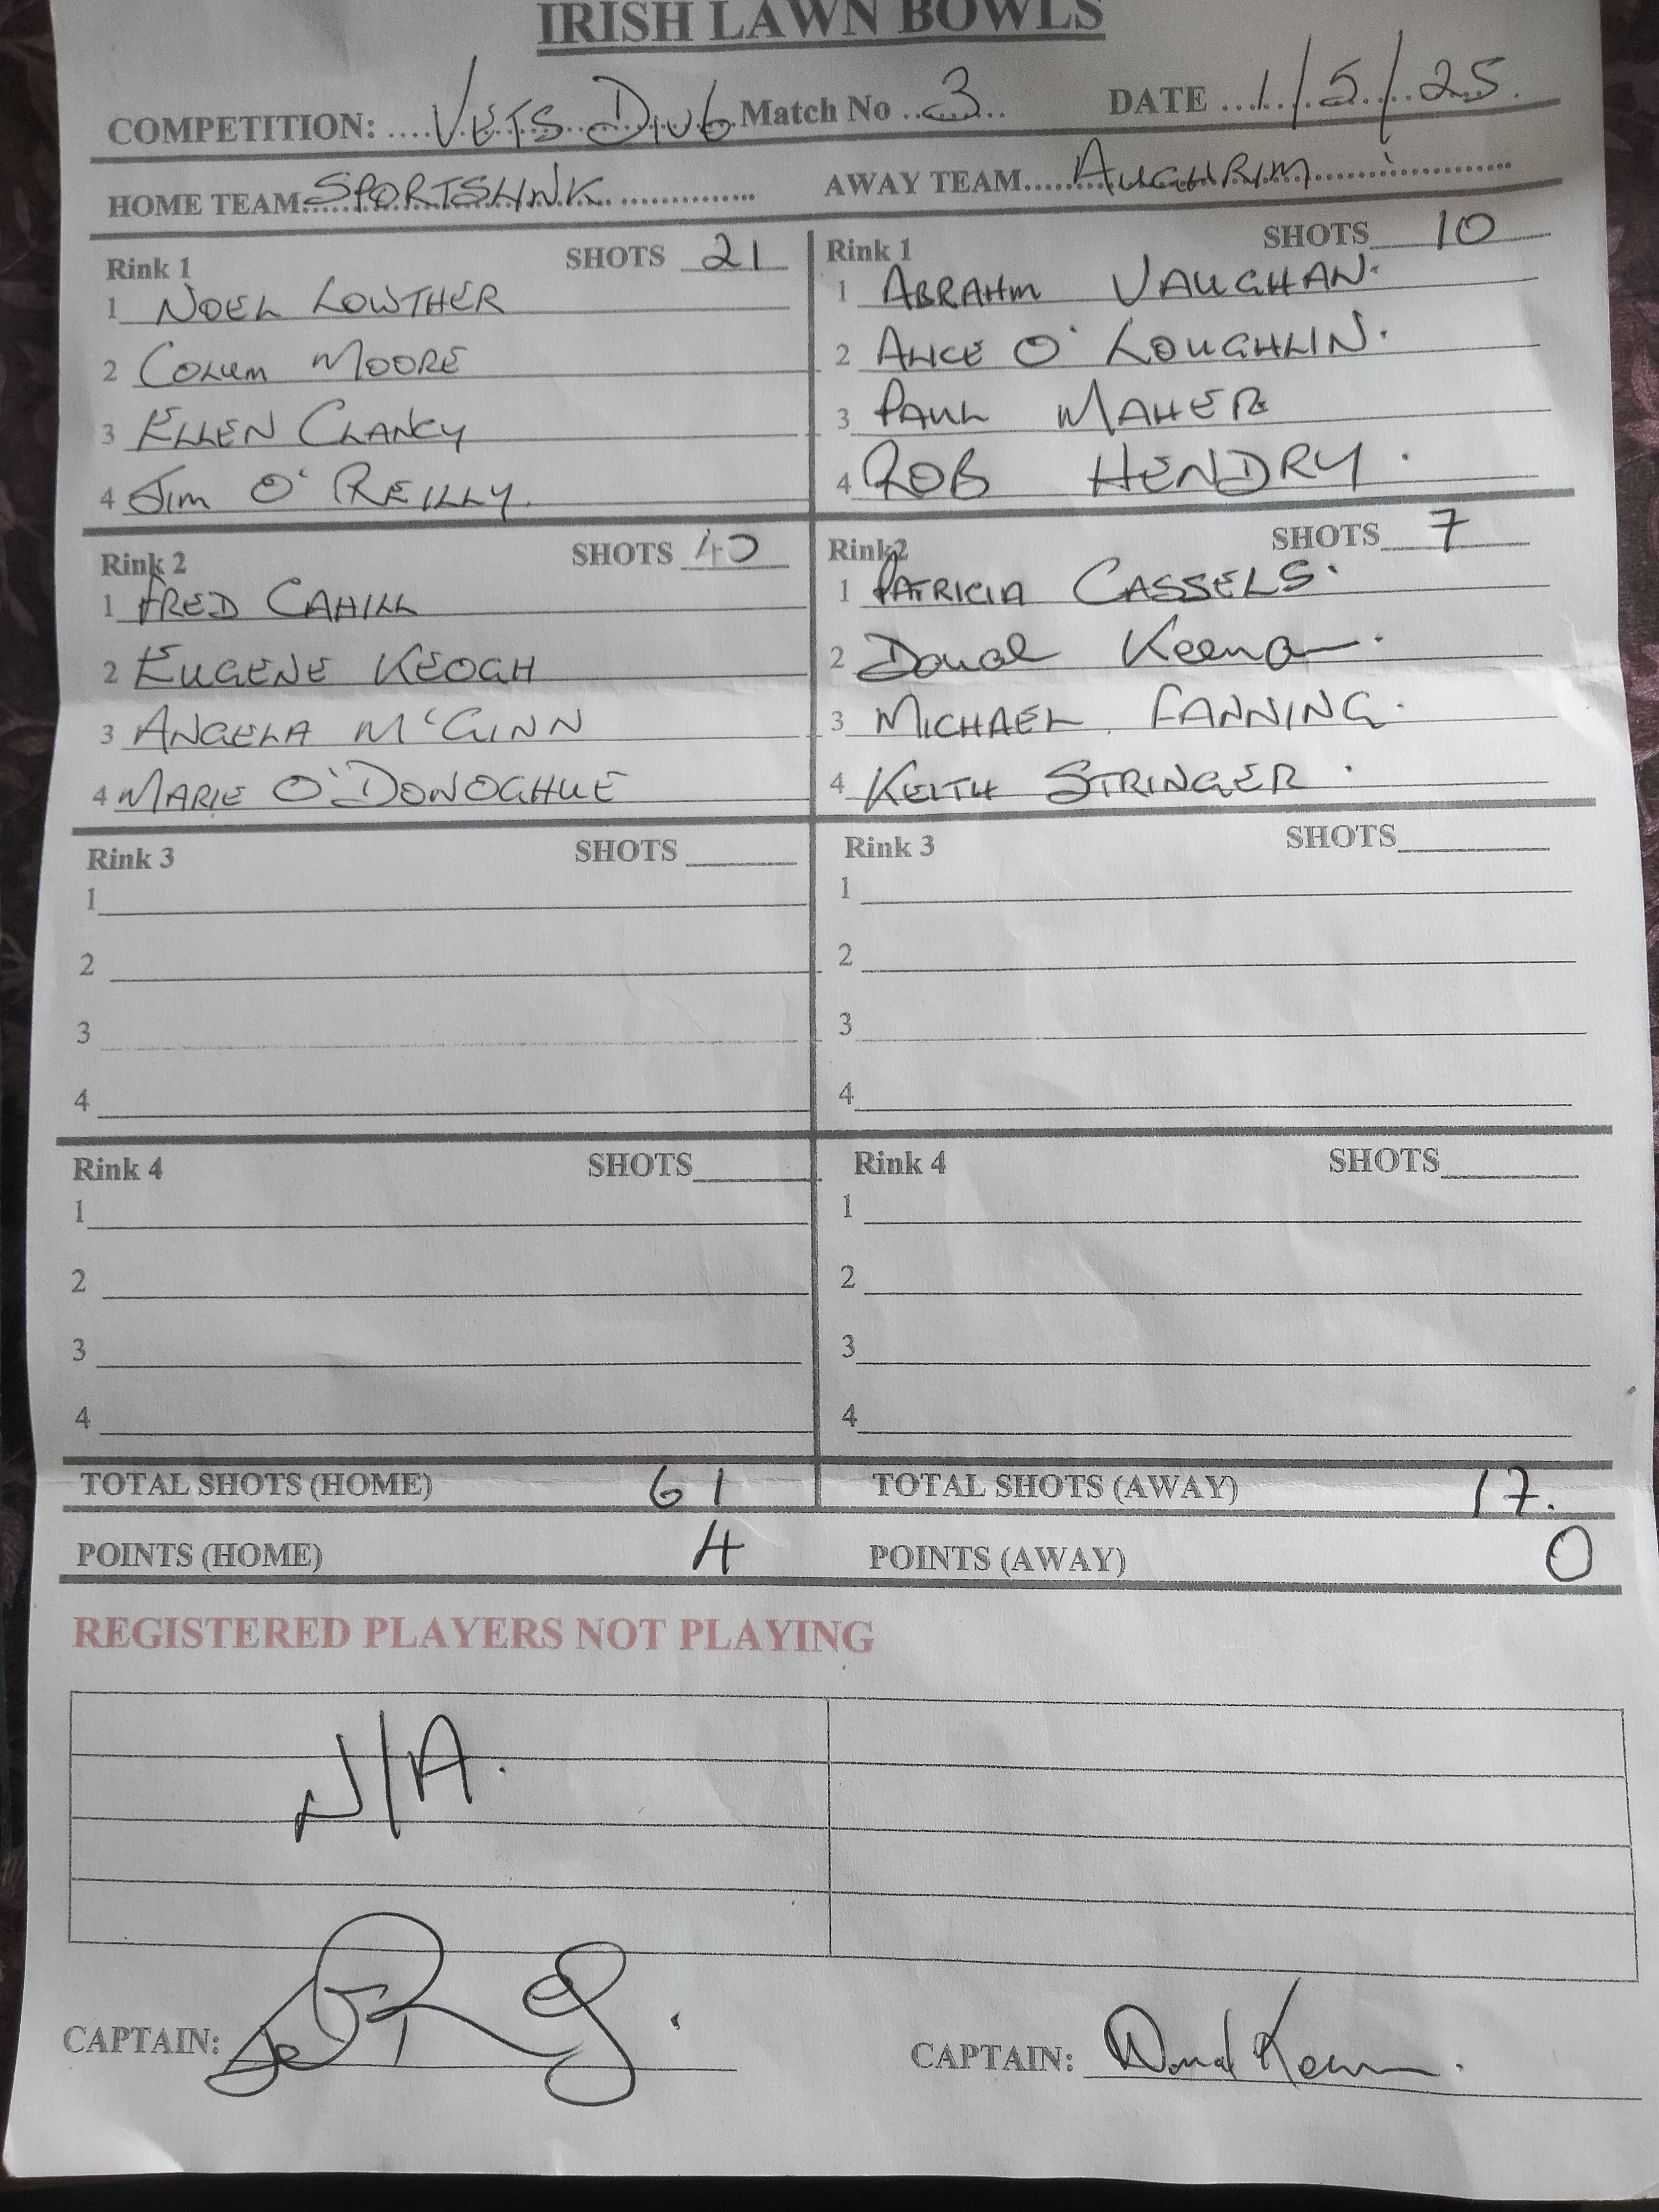 IRISH LAWN BOWLS
COMPETITION: VETS DIV6 Match No 3 DATE 1/5/25
HOME TEAM SPORTSLINK AWAY TEAM AUGHRIM
Rink 1 SHOTS 21
1 NOEL LOWTHER
2 COLUM MOORE
3 ELLEN CLANCY
4 JIM O'REILLY
Rink 1 SHOTS 10
1 ABRAHM VAUGHAN.
2 ALICE O'LOUGHLIN.
3 PAUL MAHER
4 ROB HENDRY.
Rink 2 SHOTS 40
1 FRED CAHILL
2 EUGENE KEOGH
3 ANGELA M'GINN
4 MARIE O'DONOGHUE
Rink2 SHOTS 7
1 PATRICIA CASSELS.
2 Donal Keenan.
3 MICHAEL FANNING.
4 KEITH STRINGER.
Rink 3 SHOTS
1
2
3
4
Rink 3 SHOTS
1
2
3
4
Rink 4 SHOTS
1
2
3
4
Rink 4 SHOTS
1
2
3
4
TOTAL SHOTS (HOME) 61 TOTAL SHOTS (AWAY) 17.
POINTS (HOME) 4 POINTS (AWAY) 0
REGISTERED PLAYERS NOT PLAYING
N/A.
CAPTAIN: CAPTAIN: Donal Keenan.